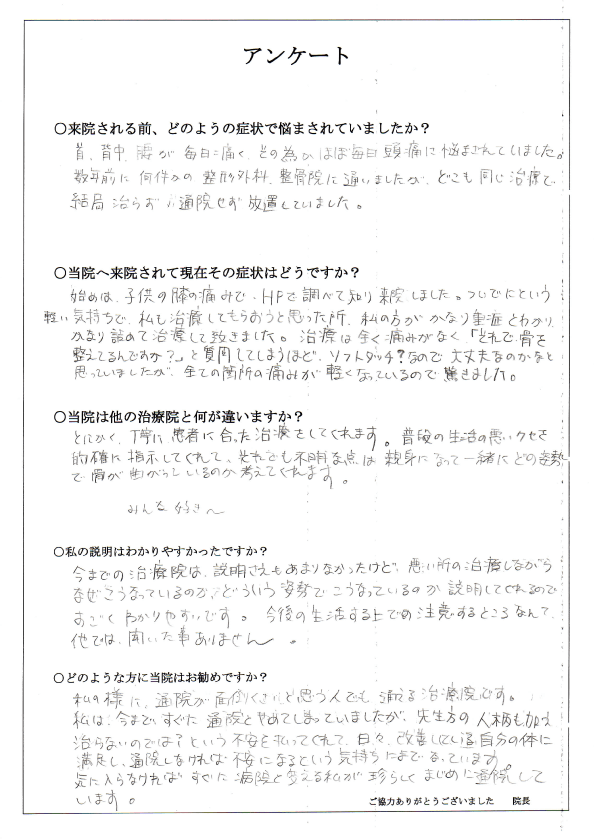 アンケート
○来院される前、どのようの症状で悩まされていましたか？
首、背中、腰が毎日痛く、その為か、ほぼ毎日頭痛に悩まされていました。
数年前に何件かの整形外科、整骨院に通いましたが、どこも同じ治療で、
結局治らず、通院せず放置していました。
○当院へ来院されて現在その症状はどうですか？
始めは、子供の膝の痛みで、HPで調べて知り来院しました。ついでにという
軽い気持ちで、私も治療してもらおうと思った所、私の方がかなり重症とわかり、
かなり詰めて治療して頂きました。治療は全く痛みがなく「それで骨を
整えてるんですか？」と質問してしまうほど、ソフトタッチ？なので大丈夫なのかなと
思っていましたが、全ての箇所の痛みが軽くなっているので驚きました。
○当院は他の治療院と何が違いますか？
とにかく、丁寧に患者に合った治療をしてくれます。普段の生活の悪いクセを
的確に指示してくれて、それでも不明な点は親身になって一緒にどの姿勢
で骨が曲がっているのか考えてくれます。
みんな好き～
○私の説明はわかりやすかったですか？
今までの治療院は、説明さえもあまりなかったけど、悪い所の治療しながら
なぜこうなっているのか、どういう姿勢でこうなっているのか説明してくれるので
すごくわかりやすいです。今後の生活する上での注意するところなんて、
他では、聞いた事ありません。
○どのような方に当院はお勧めですか？
私の様に、通院が面倒くさいと思う人でも通える治療院です。
私は、今まですぐに通院をやめてしまっていましたが、先生方の人柄も加え
治らないのでは？という不安を払ってくれて、日々、改善している自分の体に
満足し、通院しなければ不安になるという気持ちにまでなっています。
気に入らなければすぐに病院を変える私が珍らしくまじめに通院して
います。
ご協力ありがとうございました　院長